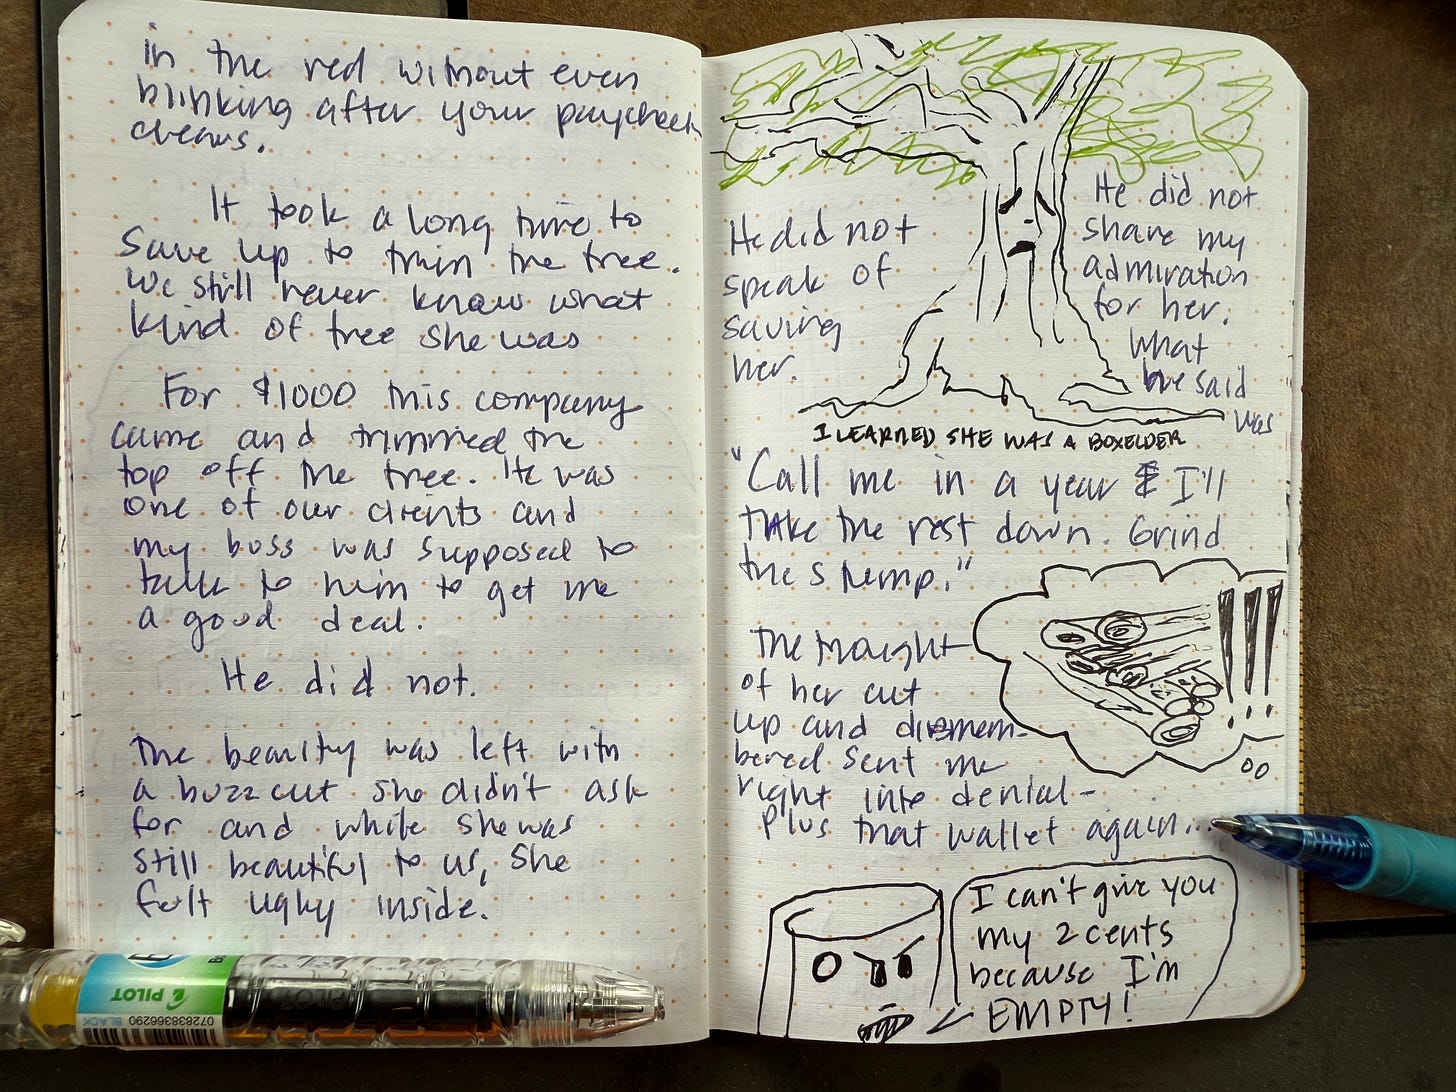 in the red without even
blinking after your paycheck
clears.
It took a long time to
save up to trim the tree.
We still never knew what
kind of tree she was
For $1000 this company
came and trimmed the
top off the tree. He was
one of our clients and
my boss was supposed to
talk to him to get me
a good deal.
He did not.
The beauity was left with
a buzz cut she didn't ask
for and while she was
still beautiful to us, she
felt ugly inside.
PILOT
BLACK
072838366290
He did not
speak of
saving
her.
He did not
share my
admiration
for her.
What
he said
was
I LEARNED SHE WAS A BOXELDER
"Call me in a year & I'll
take the rest down. Grind
the stump."
The thought
of her cut
up and dismem-
bered sent me
right into denial-
plus that wallet again...
I can't give you
my 2 cents
because I'm
EMPTY!